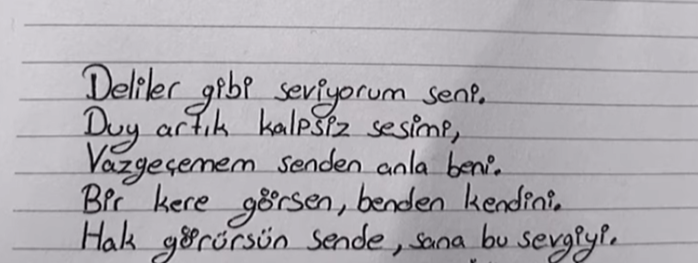 Deliler gibi seviyorum seni.
Duy artık kalpsiz sesimi,
Vazgeçemem senden anla beni.
Bir kere görsen, benden kendini.
Hak görürsün sende, sana bu sevgiyi.